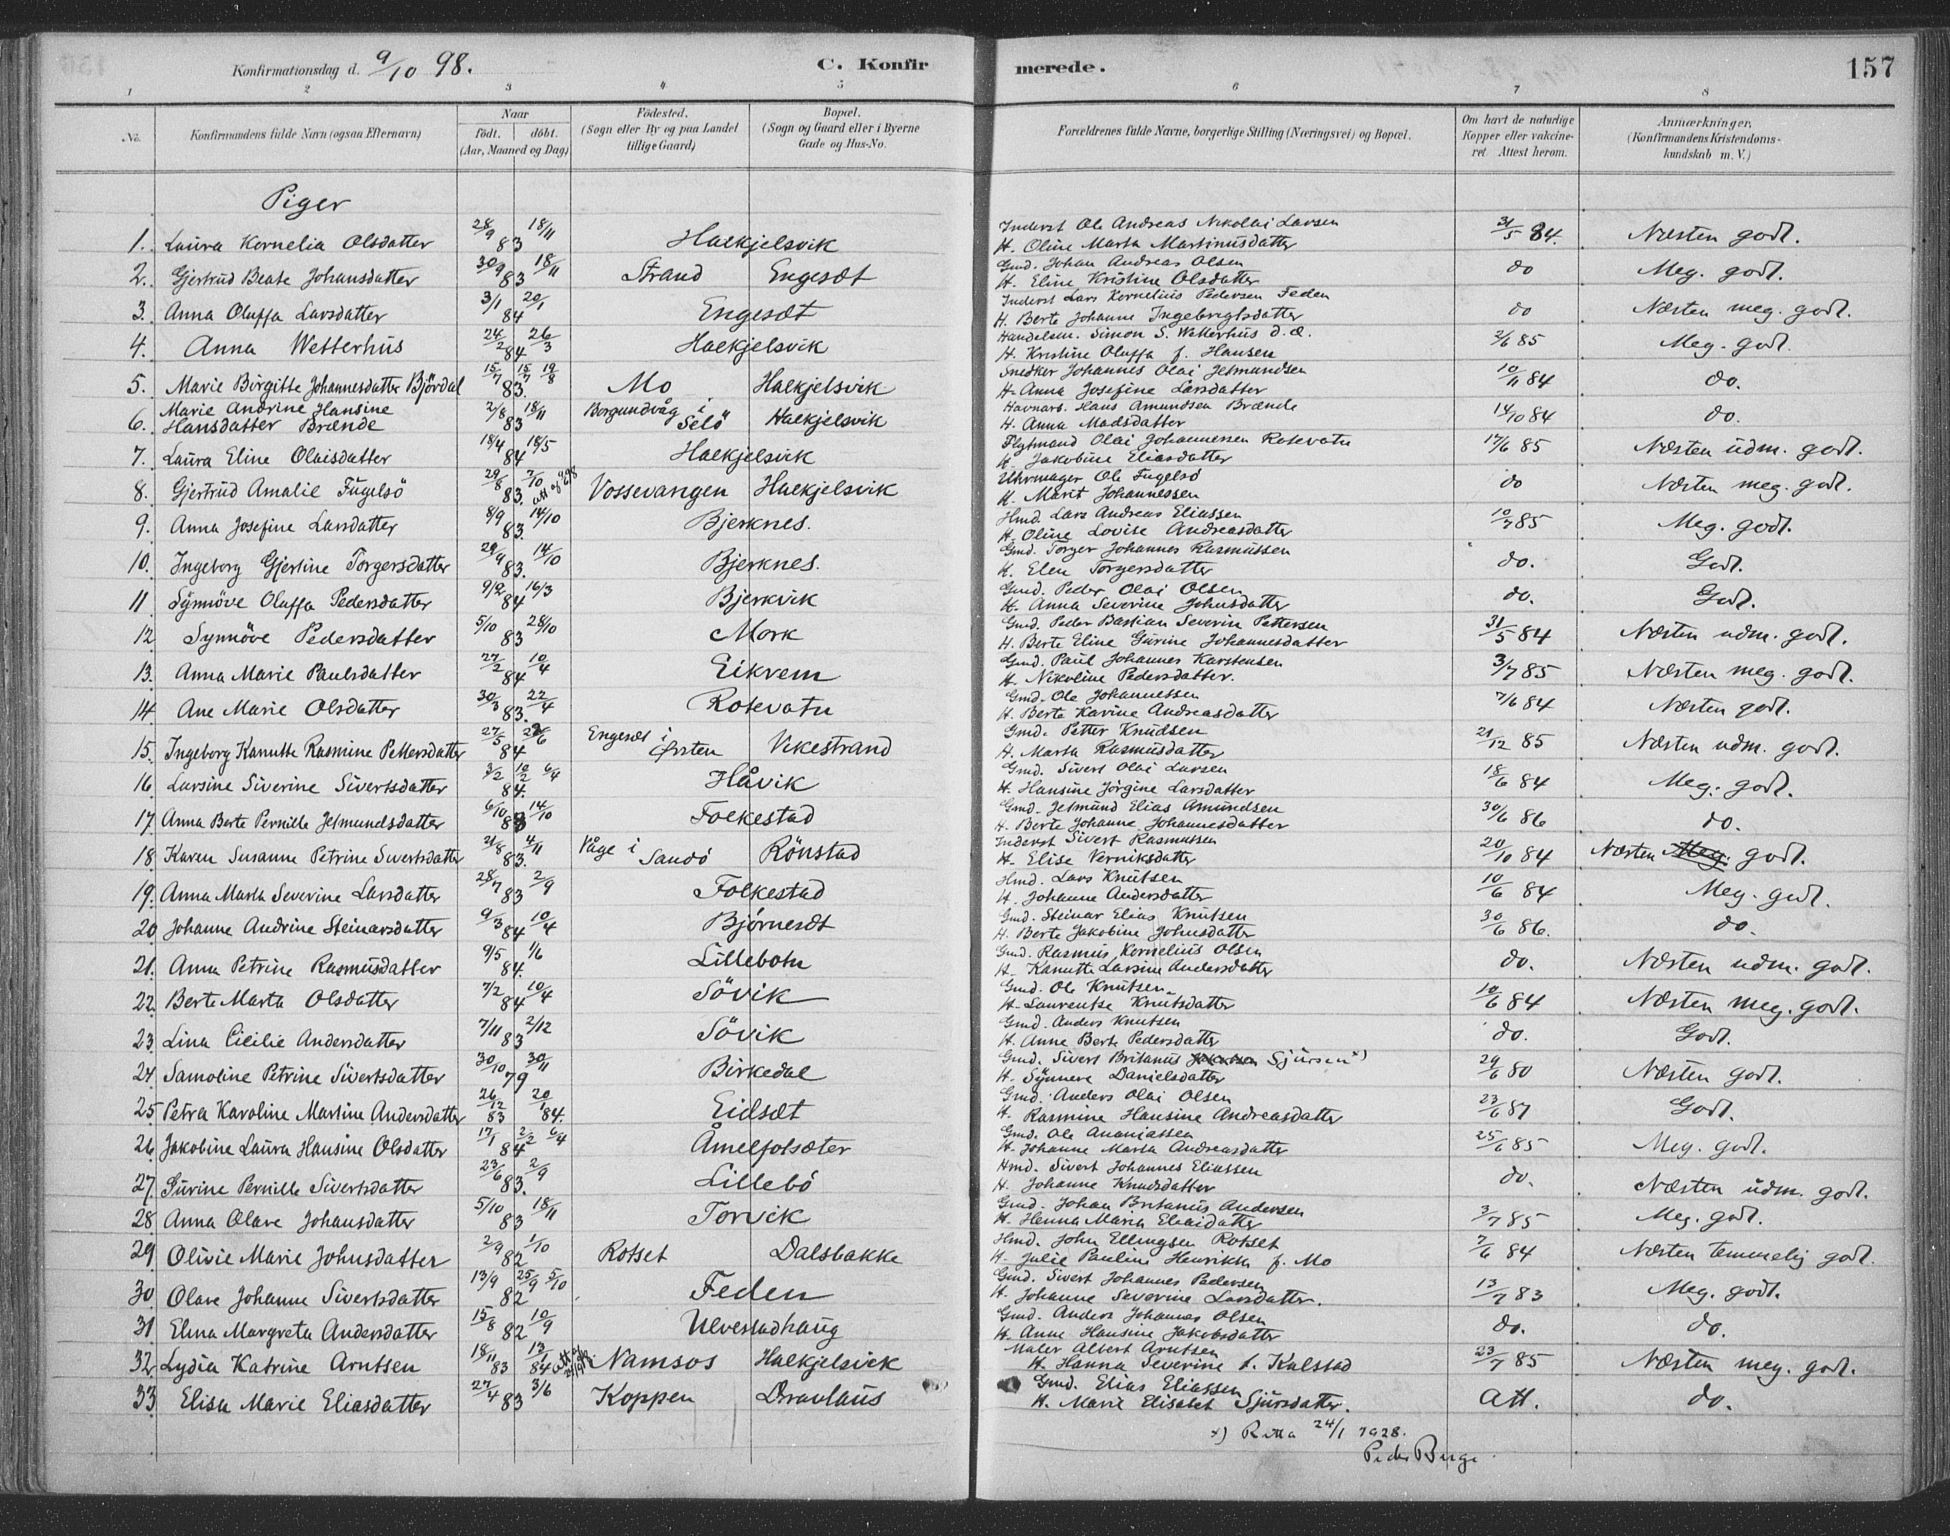 Konfirmationsdag d. 9/10 98.
C. Konfirmerede.
157
1 2 3 4 5 6 7 8
No.
Konfirmandens fulde Navn (ogsaa Efternavn)
Naar
født. døbt.
(Aar, Maaned og Dag)
Fødested.
(Sogn eller By og paa Landet
tillige Gaard)
Bopæl.
(Sogn og Gaard eller i Byerne
Gade og Hus-No.
Forældrenes fulde Navne, borgerlige Stilling (Næringsvei) og Bopæl.
Om havt de naturlige
Kopper eller vakcine-
ret Attest herom.
Anmærkninger,
(Konfirmandens Kristendoms-
kundskab m. V.)
Piger
1. Laura Kornelia Olsdatter 28/9 83 18/11 Halkjelsvik Inderst Ole Andreas Nikolai Larsen H. Oline Marta Martinusdatter 31/5 84. Næsten godt.
2. Gjertrud Beate Johansdatter 30/9 83 18/11 Strand Engesæt Gmd. Johan Andreas Olsen H. Eline Kristine Olsdatter do Meg. godt.
3. Anna Oluffa Larsdatter 3/1 84 20/1 Engesæt Inderst Lars Kornelius Pedersen Feden H. Berte Johanne Ingebrigtsdatter do Næsten meg. godt.
4. Anna Wetterhus 24/2 84 26/3 Halkjelsvik Handelsm. Simon S. Wetterhus d. æ. H. Kristine Oluffa f. Hansen 2/6 85 Meg. godt.
5. Marie Birgitte Johannesdatter Björdal 15/7 83. 15/7 19/8 Mo Halkjelsvik Snedker Johannes Olai Jetmundsen H. Anna Josefine Larsdatter 10/11 84 do.
6. Marie Andrine Hansine Hansdatter Brænde 2/8 83 18/11 Borgundvåg i Selö Halkjelsvik Havnarb. Hans Amundsen Brænde H. Anna Madsdatter 14/10 84 do.
7. Laura Eline Olaisdatter 18/4 84 18/5 Halkjelsvik Flytmand Olai Johannessen Rotevatn H. Jakobine Eliasdatter 17/6 85 Næsten udm. godt.
8. Gjertrud Amalie Fugelsö 29/8 83. 7/10 Vossevangen Halkjelsvik Uhrmager Ole Fugelsö H. Marit Johannessen do Næsten meg. godt.
9. Anna Josefine Larsdatter 8/9 83. 14/10 Bjerknes. Hmd. Lars Andreas Eliassen H. Oline Lovise Andreasdatter 10/7 85 Meg. godt.
10. Ingeborg Gjertine Torgersdatter 29/9 83. 14/10 Bjerknes. Gmd. Torger Johannes Rasmussen H. Elen Torgersdatter do. Godt.
11 Synnöve Oluffa Pedersdatter 9/2 84 16/3 Bjerkvik Gmd. Peder Olai Olsen H. Anna Severine Johnsdatter do. Godt.
12 Synnöve Pedersdatter 5/10 83 28/10 Mork Gmd. Peder Bastian Severin Pettersen H. Berte Eline Gurine Johannesdatter 31/5 84 Næsten udm. godt.
13. Anna Marie Paulsdatter 27/2 84 10/4 Eikrem Gmd. Paul Johannes Karstensen H. Nikoline Pedersdatter. 3/7 85 Næsten meg. godt.
14 Ane Marie Olsdatter 30/3 83. 22/4 Rotevatn Gmd. Ole Johannessen H. Berte Karine Andreasdatter 7/6 84 Næsten godt.
15. Ingeborg Kanutte Rasmine Pettersdatter 27/5 84 22/6 Engeset i Ørsten Vikestrand Gmd. Petter Knudsen H. Marta Rasmusdatter 21/12 85 Næsten udm. godt.
16. Larsine Siverine Sivertsdatter 3/2 84. 10/2 6/4 Håvik Gmd. Sivert Olai Larsen H. Hansine Jörgine Larsdatter 18/6 84 Meg. godt.
17. Anna Berte Pernille Jetmundsdatter 6/10 83 14/10 Folkestad Gmd. Jetmund Elias Amundsen H. Berte Johanne Johannesdatter 30/6 86 do.
18. Karen Susanne Petrine Sivertsdatter 21/8 83. 4/11 Våge i Sandö Rönstad Inderst Sivert Rasmussen H. Elise Verniksdatter 20/10 84 Næsten Meg. godt.
19. Anna Marta Severine Larsdatter 28/7 83 2/9 Folkestad Hmd. Lars Knutsen H. Johanne Andersdatter 10/6 84 Meg. godt.
20 Johanne Andrine Steinarsdatter 9/3 84 10/4 Björneset Gmd. Steinar Elias Knutsen H. Berte Jakobine Johnsdatter 30/6 86. do.
21. Anna Petrine Rasmusdatter 9/5 84. 1/6 Lillebotn Gmd. Rasmus Kornelius Olsen H. Kanutte Larsine Andersdatter do. Næsten udm. godt.
22. Berte Marta Olsdatter 7/2 84 10/4 Sövik Gmd. Ole Knutsen H. Laurentse Knutsdatter 10/6 84 Næsten meg. godt.
23 Lina Cicilie Andersdatter 7/11 83 2/12 Sövik Gmd. Anders Knutsen H. Anne Berte Pedersdatter do. Godt.
24. Samoline Petrine Sivertsdatter 30/10 79 30/11 Birkedal Gmd. Sivert Britanus Sjursen x) H. Synneve Danielsdatter 29/6 80 Næsten godt.
25 Petra Karoline Martine Andersdatter 26/12 83 20/1 84. Eidsæt Gmd. Anders Olai Olsen H. Rasmine Hansine Andreasdatter 23/6 87 Godt.
26 Jakobine Laura Hansine Olsdatter 17/1 84 2/2 6/4 Åmelfotsæter Gmd. Ole Ananiassen H. Johanne Marta Andreasdatter 25/6 85 Meg. godt.
27. Gurine Pernille Sivertsdatter 23/6 83. 2/9 Lillebö Hmd. Sivert Johannes Eliassen H. Johanne Knudsdatter do. Næsten udm. godt.
28 Anna Olave Johansdatter 5/10 83 18/11 Torvik Gmd. Johan Britanus Andersen H. Hanna Maria Eliasdatter 3/7 85 Meg. godt.
29 Olivie Marie Johnsdatter 2/9 82 1/10 Rotset Dalsbakke Hmd. John Ellingsen Rotset H. Julie Pauline Henrikke f. Mo 7/6 84 Næsten temmelig godt.
30 Olave Johanne Sivertsdatter 13/9 82 25/9 5/10 Feden Gmd. Sivert Johannes Pedersen H. Johanne Severine Larsdatter. 13/7 83 Meg. godt.
31 Elina Margreta Andersdatter 15/8 82 10/9 Ulvestadhaug Gmd. Anders Johannes Olsen H. Anne Hansine Jakobsdatter do. do.
32. Lydia Katrine Arntsen 18/11 83 13/1 84 Namsos Halkjelsvik Maler Albert Arntsen H. Hanna Severine f. Kalstad 23/7 85 Næsten meg. godt.
33 Elisa Marie Eliasdatter 27/4 83 3/6 Koppen Dravlaus Gmd. Elias Eliassen H. Marie Elisabet Sjursdatter. Att. do.
x) Retta 24/1 1928.
Peder Berge